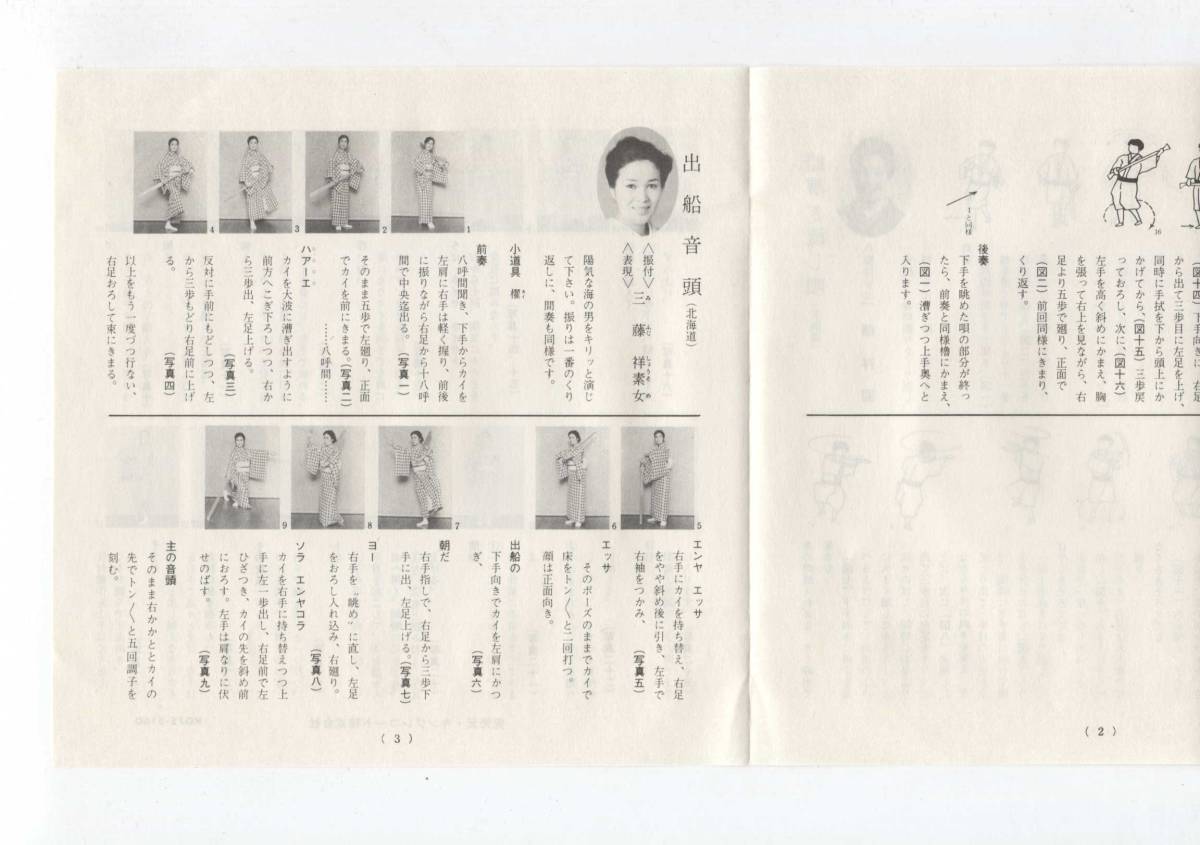 16
1と同様
から出て三歩目に左足を上げ、
同時に手拭を下から頭上にか
かげてから、(図十五) 三歩戻
っておろし、次に、(図十六)
左手を高く斜めにかまえ、胸
を張って右上を見ながら、右
足より五歩で廻り、正面で
(図二) 前回同様にきまり、
くり返す。
後奏
下手を眺めた唄の部分が終っ
たら、前奏と同様櫓にかまえ、
(図一) 漕ぎつつ上手奥へと
入ります。
( 2 )
出船音頭 (北海道)
<振付> 三藤祥素女
<表現>
陽気な海の男をキリッと演じ
て下さい。振りは一番のくり
返しに、間奏も同様です。
小道具 櫂
前奏
八呼間聞き、下手からカイを
左肩に右手は軽く握り、前後
に振りながら右足から十八呼
間で中央迄出る。 (写真一)
そのまま五歩で左廻り、正面
でカイを前にきまる。(写真二)
……八呼間……
ハアーエ
カイを大波に漕ぎ出すように
前方へこぎ下ろしつつ、右か
ら三歩出、左足上げる。
(写真三)
反対に手前にもどしつつ、左
から三歩もどり右足前に上げ
る。 (写真四)
以上をもう一度づつ行ない、
右足おろして束にきまる。
1
2
3
4
エンヤ エッサ
右手にカイを持ち替え、右足
をやや斜め後に引き、左手で
右袖をつかみ、 (写真五)
そのポーズのままでカイで
エッサ
床をトン〳〵と二回打つ。
顔は正面向き。
出船の
下手向きでカイを左肩にかつ
ぎ、 (写真六)
朝だ
右手指しで、右足から三歩下
手に出、左足上げる。(写真七)
ヨー
右手を〝眺め〟に直し、左足
をおろし入れ込み、右廻り。
(写真八)
ソラ エンヤコラ
カイを右手に持ち替えつつ上
手に左一歩出し、右足前で左
ひざつき、カイの先を斜め前
におろす。左手は肩なりに伏
せのばす。 (写真九)
主の音頭
そのまま右かかととカイの
先でトン〳〵と五回調子を
刻む。
5
6
7
8
9
( 3 )